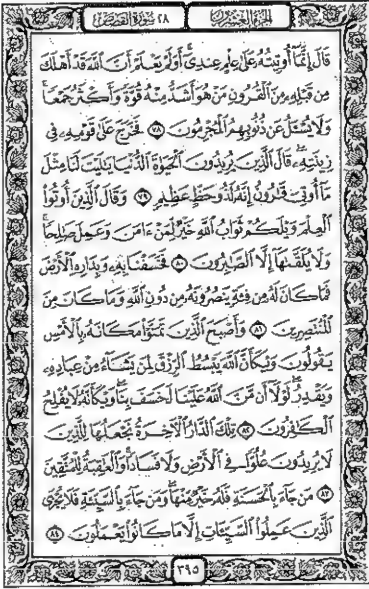 الجزء العشرون ٢٨ سورة القصص
قَالَ إِنَّمَا أُوتِيتُهُ عَلَىٰ عِلْمٍ عِندِي أَوَلَمْ يَعْلَمْ أَنَّ اللَّهَ قَدْ أَهْلَكَ
مِن قَبْلِهِ مِنَ الْقُرُونِ مَنْ هُوَ أَشَدُّ مِنْهُ قُوَّةً وَأَكْثَرُ جَمْعًا
وَلَا يُسْـَٔلُ عَن ذُنُوبِهِمُ الْمُجْرِمُونَ ٧٨ فَخَرَجَ عَلَىٰ قَوْمِهِ فِي
زِينَتِهِ قَالَ الَّذِينَ يُرِيدُونَ الْحَيَوٰةَ الدُّنْيَا يَٰلَيْتَ لَنَا مِثْلَ
مَا أُوتِيَ قَٰرُونُ إِنَّهُ لَذُو حَظٍّ عَظِيمٍ ٧٩ وَقَالَ الَّذِينَ أُوتُوا
الْعِلْمَ وَيْلَكُمْ ثَوَابُ اللَّهِ خَيْرٌ لِّمَنْ ءَامَنَ وَعَمِلَ صَٰلِحًا
وَلَا يُلَقَّىٰهَا إِلَّا الصَّٰبِرُونَ ٨٠ فَخَسَفْنَا بِهِ وَبِدَارِهِ الْأَرْضَ
فَمَا كَانَ لَهُ مِن فِئَةٍ يَنصُرُونَهُ مِن دُونِ اللَّهِ وَمَا كَانَ مِنَ
الْمُنتَصِرِينَ ٨١ وَأَصْبَحَ الَّذِينَ تَمَنَّوْا مَكَانَهُ بِالْأَمْسِ
يَقُولُونَ وَيْكَأَنَّ اللَّهَ يَبْسُطُ الرِّزْقَ لِمَن يَشَاءُ مِنْ عِبَادِهِ
وَيَقْدِرُ لَوْلَا أَن مَّنَّ اللَّهُ عَلَيْنَا لَخَسَفَ بِنَا وَيْكَأَنَّهُ لَا يُفْلِحُ
الْكَٰفِرُونَ ٨٢ تِلْكَ الدَّارُ الْءَاخِرَةُ نَجْعَلُهَا لِلَّذِينَ
لَا يُرِيدُونَ عُلُوًّا فِي الْأَرْضِ وَلَا فَسَادًا وَالْعَٰقِبَةُ لِلْمُتَّقِينَ
٨٣ مَن جَاءَ بِالْحَسَنَةِ فَلَهُ خَيْرٌ مِّنْهَا وَمَن جَاءَ بِالسَّيِّئَةِ فَلَا يُجْزَى
الَّذِينَ عَمِلُوا السَّيِّـَٔاتِ إِلَّا مَا كَانُوا يَعْمَلُونَ ٨٤
٣٩٥